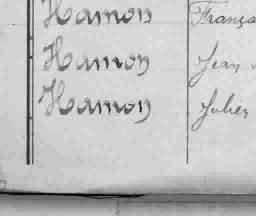 Hamon Franç
Hamon Jean
Hamon Julien